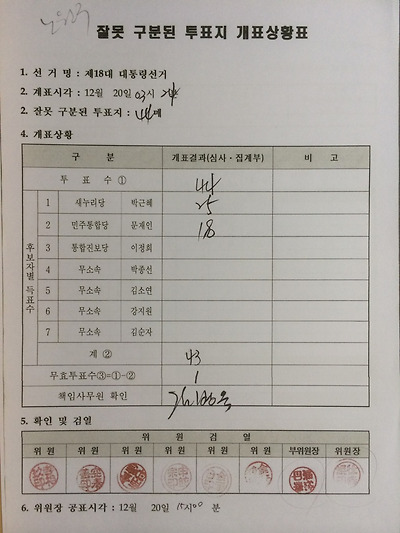 잘못 구분된 투표지 개표상황표
1. 선 거 명 : 제18대 대통령선거
2. 개표시각 : 12월 20일 03시 24분
2. 잘못 구분된 투표지 : 44매
4. 개표상황
구 분 개표결과(심사·집계부) 비 고
투 표 수 ① 44
후보자별 득표수
1 새누리당 박근혜 25
2 민주통합당 문재인 18
3 통합진보당 이정희
4 무소속 박종선
5 무소속 김소연
6 무소속 강지원
7 무소속 김순자
계 ② 43
무효투표수③=①-② 1
책임사무원 확인
5. 확인 및 검열
위 원 검 열
위 원 위 원 위 원 위 원 위 원 위 원 부위원장 위원장
6. 위원장 공표시각 : 12월 20일 15시00 분